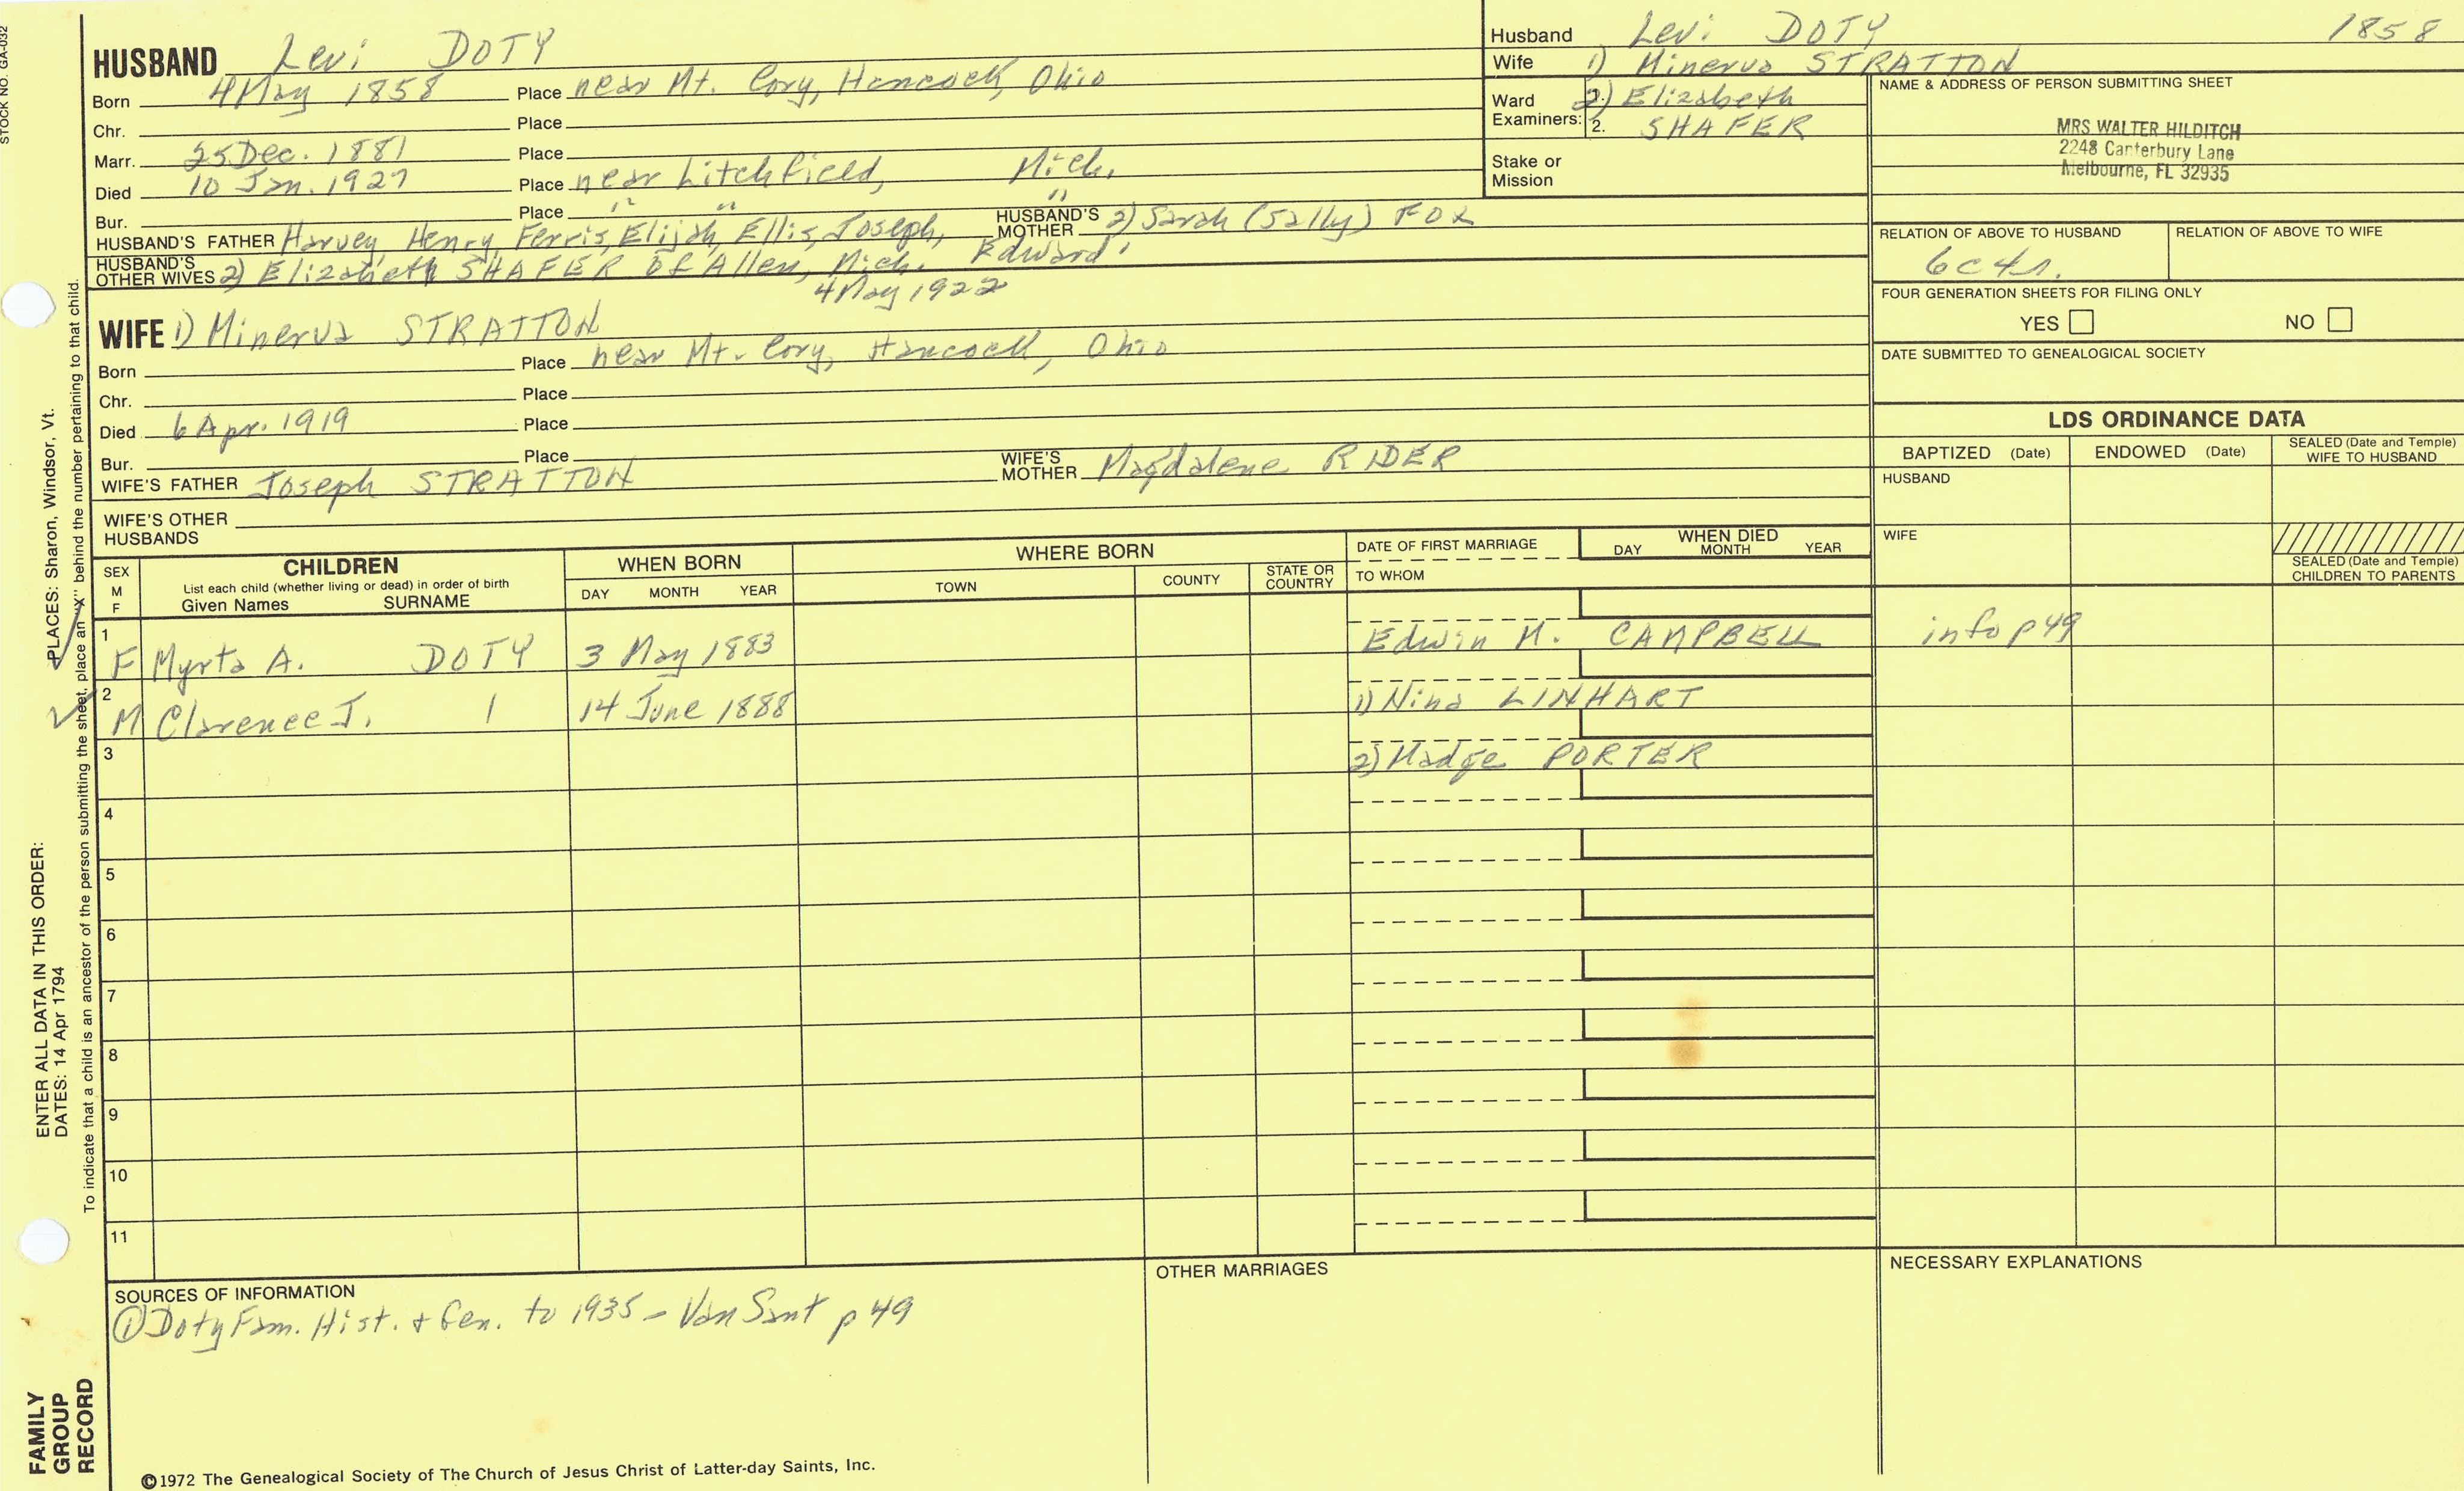 STOCK NO. GA-032
HUSBAND Levi DOTY
Born 4 May 1858 Place near Mt. Cory, Hancock, Ohio
Chr. Place
Marr. 25 Dec. 1881 Place
Died 10 Jan. 1927 Place near Litchfield, Mich.
Bur. Place " " "
HUSBAND'S FATHER Harvey, Henry, Ferris, Elijah, Ellis, Joseph, Edward HUSBAND'S MOTHER 2) Sarah (Sally) FOX
HUSBAND'S OTHER WIVES 2) Elizabeth SHAFER of Allen, Mich.
4 May 1922
WIFE 1) Minerva STRATTON
Born Place near Mt. Cory, Hancock, Ohio
Chr. Place
Died 6 Apr. 1919 Place
Bur. Place
WIFE'S FATHER Joseph STRATTON WIFE'S MOTHER Magdalene RIDER
WIFE'S OTHER HUSBANDS
Husband Levi DOTY 1858
Wife 1) Minerva STRATTON
Ward Examiners: 1. 2) Elizabeth
2. SHAFER
Stake or Mission
NAME & ADDRESS OF PERSON SUBMITTING SHEET
MRS WALTER HILDITCH
2248 Canterbury Lane
Melbourne, FL 32935
RELATION OF ABOVE TO HUSBAND RELATION OF ABOVE TO WIFE
6c4r.
FOUR GENERATION SHEETS FOR FILING ONLY
YES NO
DATE SUBMITTED TO GENEALOGICAL SOCIETY
LDS ORDINANCE DATA
BAPTIZED (Date) ENDOWED (Date) SEALED (Date and Temple) WIFE TO HUSBAND
HUSBAND
WIFE
SEALED (Date and Temple) CHILDREN TO PARENTS
SEX M F
CHILDREN
List each child (whether living or dead) in order of birth
Given Names SURNAME
WHEN BORN
DAY MONTH YEAR
WHERE BORN
TOWN COUNTY STATE OR COUNTRY
DATE OF FIRST MARRIAGE
TO WHOM
WHEN DIED
DAY MONTH YEAR
1 F Myrta A. DOTY 3 May 1883 Edwin M. CAMPBELL info p49
2 M Clarence J. 1 14 June 1888 1) Nina LINHART
3 2) Madge PORTER
4
5
6
7
8
9
10
11
SOURCES OF INFORMATION
① Doty Fam. Hist. + Gen. to 1935 - Van Sant p 49
OTHER MARRIAGES
NECESSARY EXPLANATIONS
©1972 The Genealogical Society of The Church of Jesus Christ of Latter-day Saints, Inc.
FAMILY GROUP RECORD
ENTER ALL DATA IN THIS ORDER:
DATES: 14 Apr 1794
PLACES: Sharon, Windsor, Vt.
To indicate that a child is an ancestor of the person submitting the sheet, place an "X" behind the number pertaining to that child.